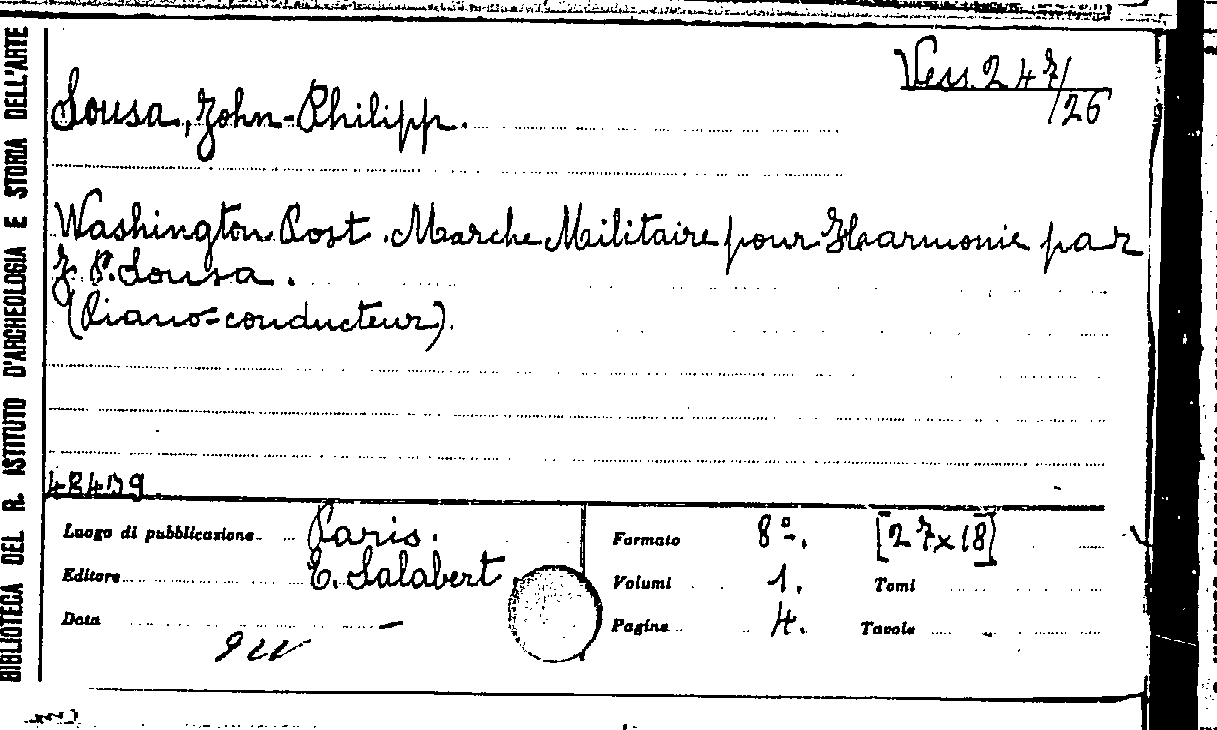 BIBLIOTECA DEL R. ISTITUTO D'ARCHEOLOGIA E STORIA DELL'ARTE
Vess. 247/26
Sousa, John-Philipp.
Washington Post. Marche Militaire pour Harmonie par
J. P. Sousa.
(Piano=conducteur).
Luogo di pubblicazione Paris.
Editore E. Salabert
Data —
Formato 8º. [27x18]
Volumi 1. Tomi
Pagine 4. Tavole -